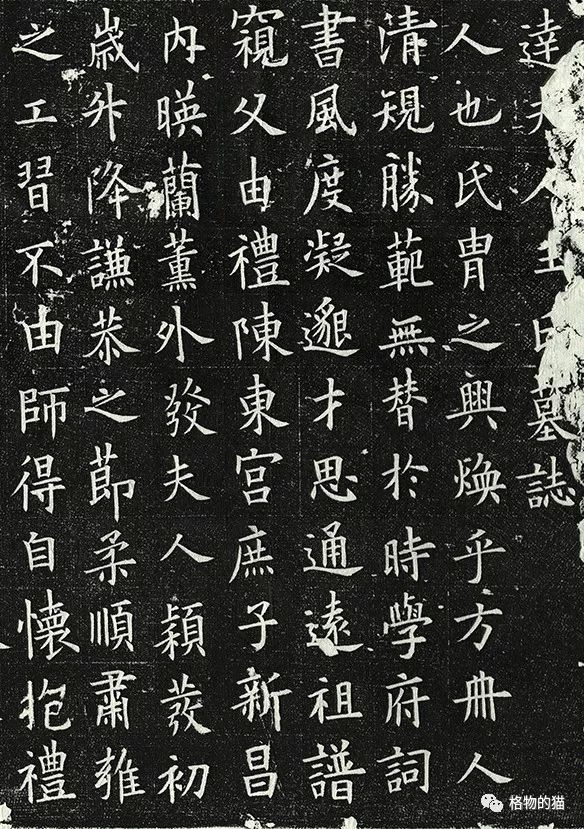 達夫人王墓誌
人也氏胄之興煥乎方冊人
清規勝範無替於時學府詞
書風度凝邈才思通遠祖譜
窺父由禮陳東宮庶子新昌
内暎蘭薰外發夫人穎發初
歲升降謙恭之節柔順肅雍
之工習不由師得自懷抱禮
格物的猫